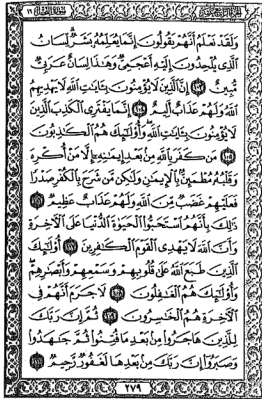 وَلَقَدْ نَعْلَمُ أَنَّهُمْ يَقُولُونَ إِنَّمَا يُعَلِّمُهُۥ بَشَرٌ لِّسَانُ
ٱلَّذِى يُلْحِدُونَ إِلَيْهِ أَعْجَمِىٌّ وَهَٰذَا لِسَانٌ عَرَبِىٌّ
مُّبِينٌ ١٠٣ إِنَّ ٱلَّذِينَ لَا يُؤْمِنُونَ بِـَٔايَٰتِ ٱللَّهِ لَا يَهْدِيهِمُ
ٱللَّهُ وَلَهُمْ عَذَابٌ أَلِيمٌ ١٠٤ إِنَّمَا يَفْتَرِى ٱلْكَذِبَ ٱلَّذِينَ
لَا يُؤْمِنُونَ بِـَٔايَٰتِ ٱللَّهِ وَأُو۟لَٰٓئِكَ هُمُ ٱلْكَٰذِبُونَ
١٠٥ مَن كَفَرَ بِٱللَّهِ مِنۢ بَعْدِ إِيمَٰنِهِۦٓ إِلَّا مَنْ أُكْرِهَ
وَقَلْبُهُۥ مُطْمَئِنٌّۢ بِٱلْإِيمَٰنِ وَلَٰكِن مَّن شَرَحَ بِٱلْكُفْرِ صَدْرًا
فَعَلَيْهِمْ غَضَبٌ مِّنَ ٱللَّهِ وَلَهُمْ عَذَابٌ عَظِيمٌ ١٠٦
ذَٰلِكَ بِأَنَّهُمُ ٱسْتَحَبُّوا۟ ٱلْحَيَوٰةَ ٱلدُّنْيَا عَلَى ٱلْـَٔاخِرَةِ
وَأَنَّ ٱللَّهَ لَا يَهْدِى ٱلْقَوْمَ ٱلْكَٰفِرِينَ ١٠٧ أُو۟لَٰٓئِكَ
ٱلَّذِينَ طَبَعَ ٱللَّهُ عَلَىٰ قُلُوبِهِمْ وَسَمْعِهِمْ وَأَبْصَٰرِهِمْ
وَأُو۟لَٰٓئِكَ هُمُ ٱلْغَٰفِلُونَ ١٠٨ لَا جَرَمَ أَنَّهُمْ فِى
ٱلْـَٔاخِرَةِ هُمُ ٱلْخَٰسِرُونَ ١٠٩ ثُمَّ إِنَّ رَبَّكَ
لِلَّذِينَ هَاجَرُوا۟ مِنۢ بَعْدِ مَا فُتِنُوا۟ ثُمَّ جَٰهَدُوا۟
وَصَبَرُوٓا۟ إِنَّ رَبَّكَ مِنۢ بَعْدِهَا لَغَفُورٌ رَّحِيمٌ ١١٠
٢٧٩